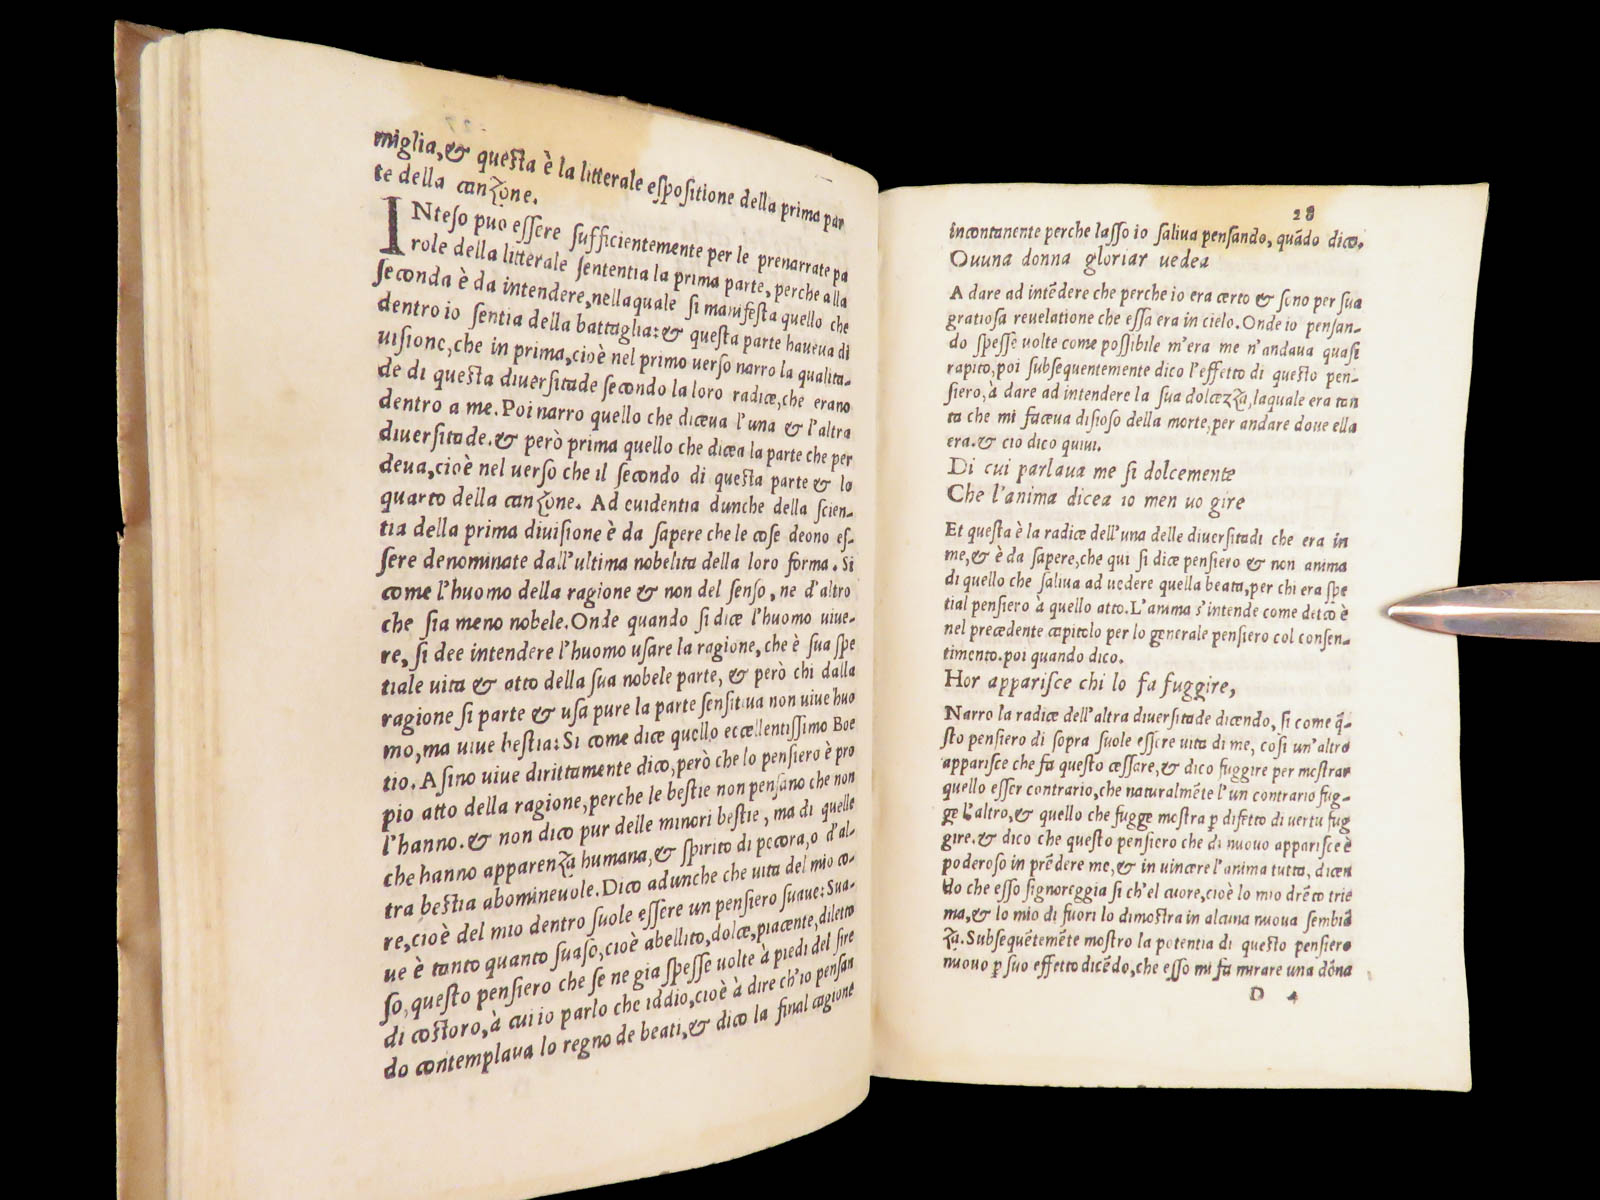 miglia, & questa è la litterale espositione della prima par
te della canzone.
INteso può essere sufficientemente per le prenarrate pa
role della litterale sententia la prima parte, perche alla
seconda è da intendere, nellaquale si manifesta quello che
dentro io sentia della battaglia: & questa parte haueua di
uisione, che in prima, cioè nel primo uerso narro la qualita-
de di questa diuersitade secondo la loro radice, che erano
dentro a me. Poi narro quello che diceua l'una & l'altra
diuersitade. & però prima quello che dicea la parte che per
deua, cioè nel uerso che il secondo di questa parte & lo
quarto della canzone. Ad euidentia dunche della scien-
tia della prima diuisione è da sapere che le cose deono es-
sere denominate dall'ultima nobelita della loro forma. Si
come l'huomo della ragione & non del senso, ne d'altro
che sia meno nobele. Onde quando si dice l'huomo uiue-
re, si dee intendere l'huomo usare la ragione, che è sua spe
tiale uita & atto della sua nobele parte, & però chi dalla
ragione si parte & usa pure la parte sensitiua non uiue huo
mo, ma uiue bestia: Si come dice quello eccellentissimo Boe
tio. Asino uiue dirittamente dico, però che lo pensiero è pro
pio atto della ragione, perche le bestie non pensano che non
l'hanno. & non dico pur delle minori bestie, ma di quelle
che hanno apparenza humana, & spirito di pecora, o d'al-
tra bestia abomineuole. Dico adunche che uita del mio co-
re, cioè del mio dentro suole essere un pensiero suaue: Sua-
ue è tanto quanto suaso, cioè abellito, dolce, piacente, diletto
so, questo pensiero che se ne gia spesse uolte à piedi del sire
di costoro, à cui io parlo che iddio, cioè à dire ch'io pensan
do contemplaua lo regno de beati, & dico la final cagione
28
incontanente perche lasso io saliua pensando, quādo dico.
Ouuna donna gloriar uedea
A dare ad intēdere che perche io era certo & sono per sua
gratiosa reuelatione che essa era in cielo. Onde io pensan-
do spesse uolte come possibile m'era me n'andaua quasi
rapito, poi subsequentemente dico l'effetto di questo pen-
siero, à dare ad intendere la sua dolcezza, laquale era tan
ta che mi faceua disioso della morte, per andare doue ella
era. & ciò dico quiui.
Di cui parlaua me si dolcemente
Che l'anima dicea io men uo gire
Et questa è la radice dell'una delle diuersitadi che era in
me, & è da sapere, che qui si dice pensiero & non anima
di quello che saliua ad uedere quella beata, per chi era spe
tial pensiero à quello atto. L'anima s'intende come detto è
nel precedente capitolo per lo generale pensiero col consen-
timento. poi quando dico.
Hor apparisce chi lo fa fuggire,
Narro la radice dell'altra diuersitade dicendo, si come q̄-
sto pensiero di sopra suole essere uita di me, cosi un'altro
apparisce che fa questo cessare, & dico fuggire per mostrar
quello esser contrario, che naturalmēte l'un contrario fug-
ge l'altro, & quello che fugge mostra p difetto di uertu fug
gire. & dico che questo pensiero che di nuouo apparisce è
poderoso in prēdere me, & in uincere l'anima tutta, dicen
do che esso signoreggia si ch'el cuore, cioè lo mio drēto trie
ma, & lo mio di fuori lo dimostra in alcuna nuoua sembiā
za. Subsequētemēte mostro la potentia di questo pensiero
nuouo p suo effetto dicēdo, che esso mi fa mirare una dōna
D 4